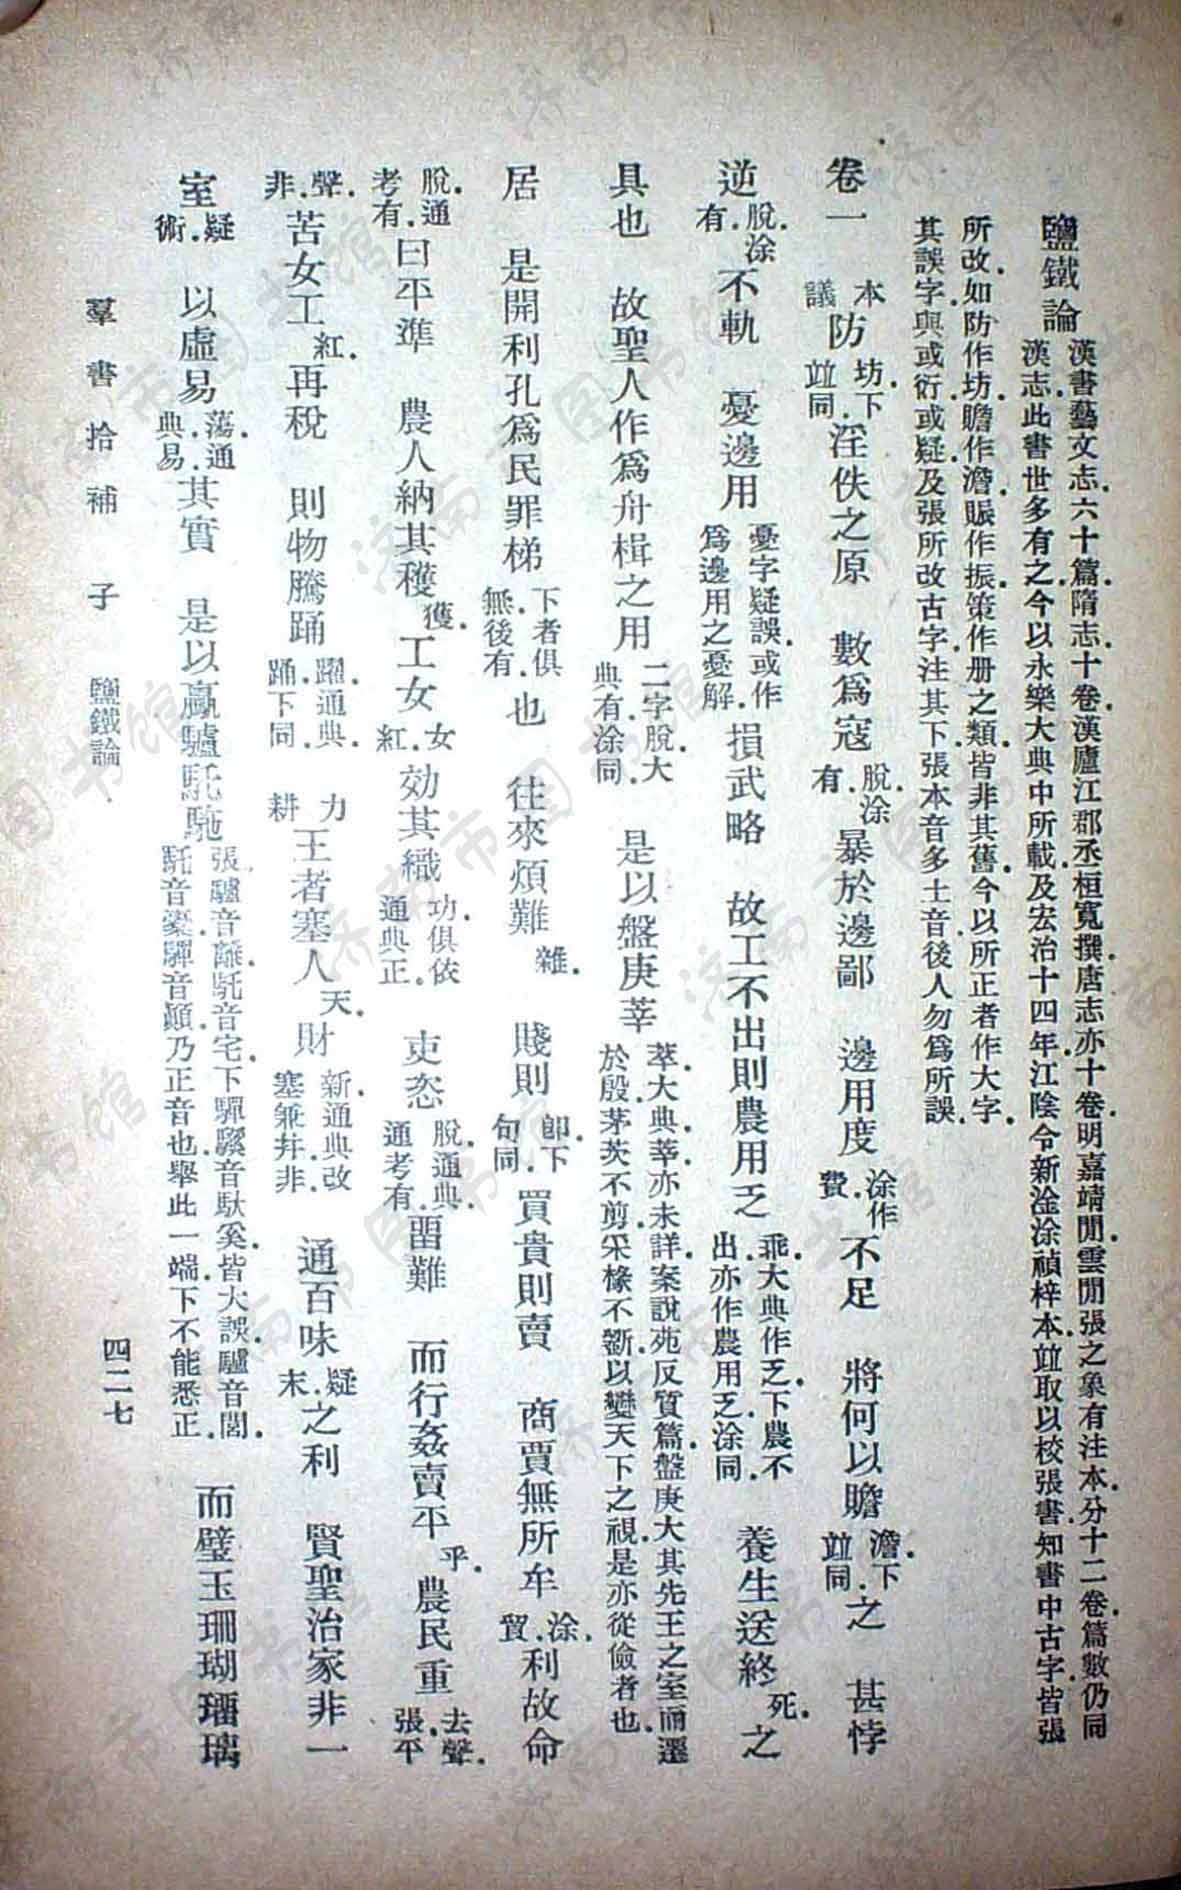 鹽鐵論
漢書藝文志六十篇.隋志十卷.漢廬江郡丞桓寬撰.唐志亦十卷.明嘉靖閒雲閒張之象有注本.分十二卷.篇數仍同
漢志.此書世多有之.今以永樂大典中所載.及宏治十四年江陰令新淦涂禎梓本.竝取以校張書.知書中古字.皆張
所改.如防作坊.贍作澹.賑作振.策作册之類.皆非其舊.今以所正者作大字.
其誤字.與或衍.或疑.及張所改古字.注其下.張本音多土音.後人勿爲所誤.
卷一 本議 防坊.下竝同.淫佚之原 數爲寇脫.涂有.暴於邊鄙 邊用度涂作費.不足 將何以贍澹.下竝同.之 甚悖
逆脫.涂有.不軌 憂邊用憂字疑誤.或作爲邊用之憂解.損武略 故工不出則農用乏乖.大典作乏.下農不出.亦作農用乏.涂同.養生送終死.之
具也 故聖人作爲舟楫之用二字脫.大典有.涂同.是以盤庚萃萃.大典.莘.亦未詳.案說苑反質篇.盤庚大其先王之室.而遷於殷.茅茨不剪.采椽不斵.以變天下之視.是亦從儉者也.
居 是開利孔爲民罪梯下者俱無.後有.也 往來煩難雜. 賤則卽.下句同.買貴則賣 商賈無所牟涂.貿.利故命
脫.通考有.曰平準 農人納其穫獲.工女女紅.効其織功.俱依通典正.吏恣脫.通典.通考有.畱難 而行姦賣平乎.農民重去聲.張平
聲.非.苦女工紅.再稅 則物騰踊躍.通典.踊.下同. 力耕 王者塞人天.財新通典改塞兼幷.非.通百味疑末.之利 賢聖治家非一
室疑術. 以虛易蕩.通典易.其實 是以驘驢馲駞張驢音離.馲音宅.下驒騱音馱奚.皆大誤.驢音閭.馲音橐.驒音顚.乃正音也.舉此一端.下不能悉正.而璧玉珊瑚瑠璃
羣書拾補 子 鹽鐵論 四二七
济南市图书馆